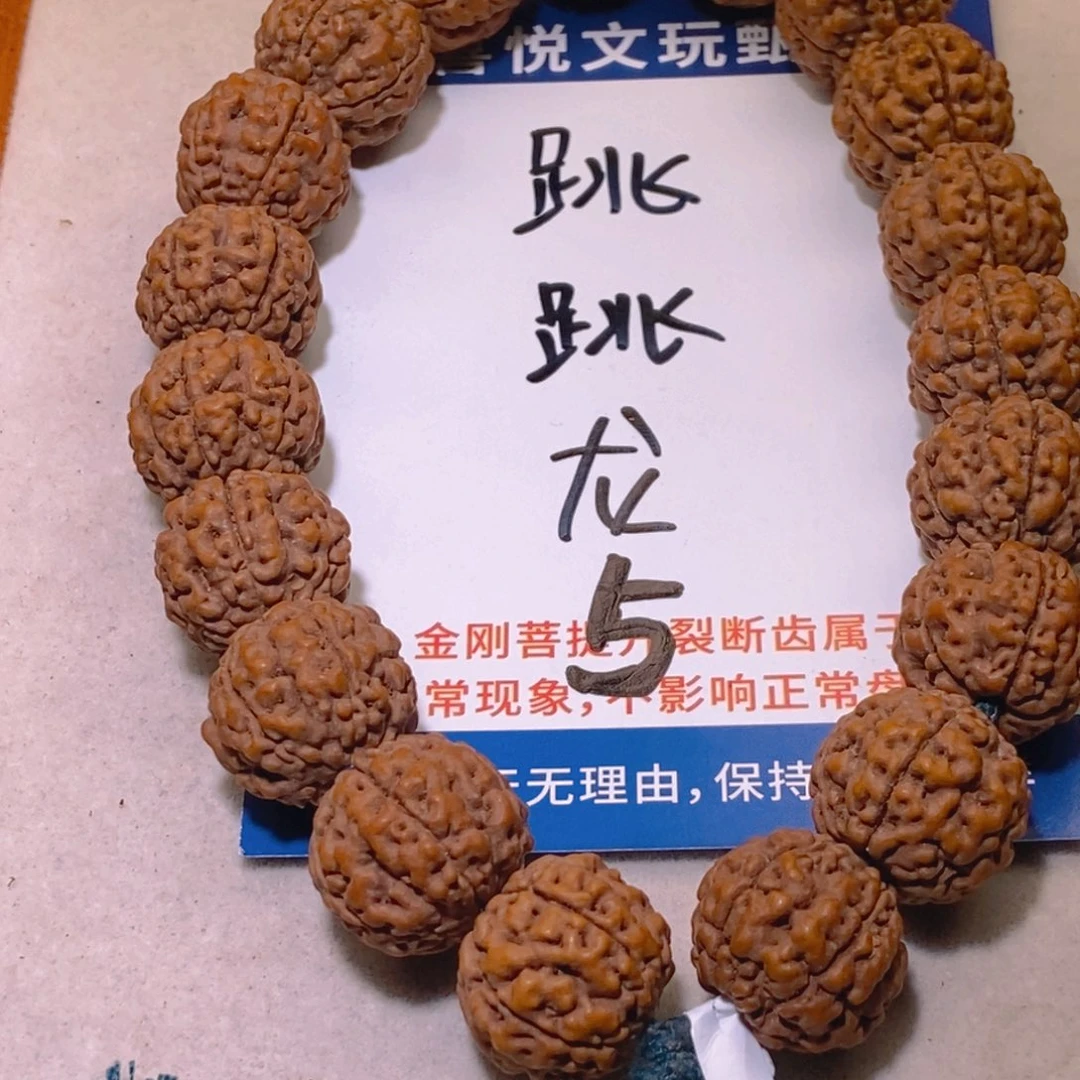 悦文玩甄
跳
跳
龙
5
金刚菩提 裂断齿属于
常现象，不影响正常盘
无理由，保持